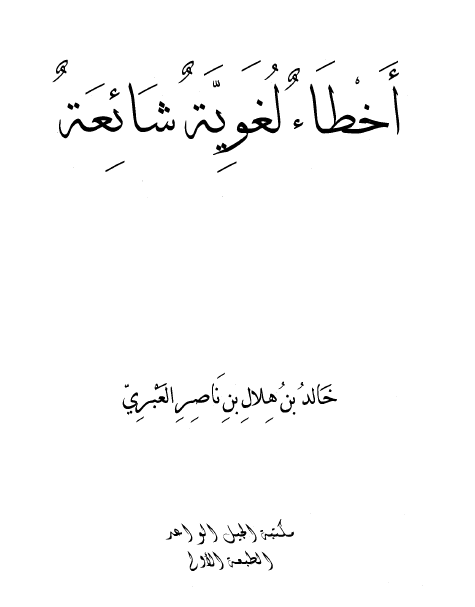 أَخْطَاءٌ لُغَوِيَّةٌ شَائِعَةٌ
خَالدُ بنُ هِلالِ بنِ نَاصِرِ العَبْرِيّ
مكتبة الجيل الواعد
الطبعة الأولى